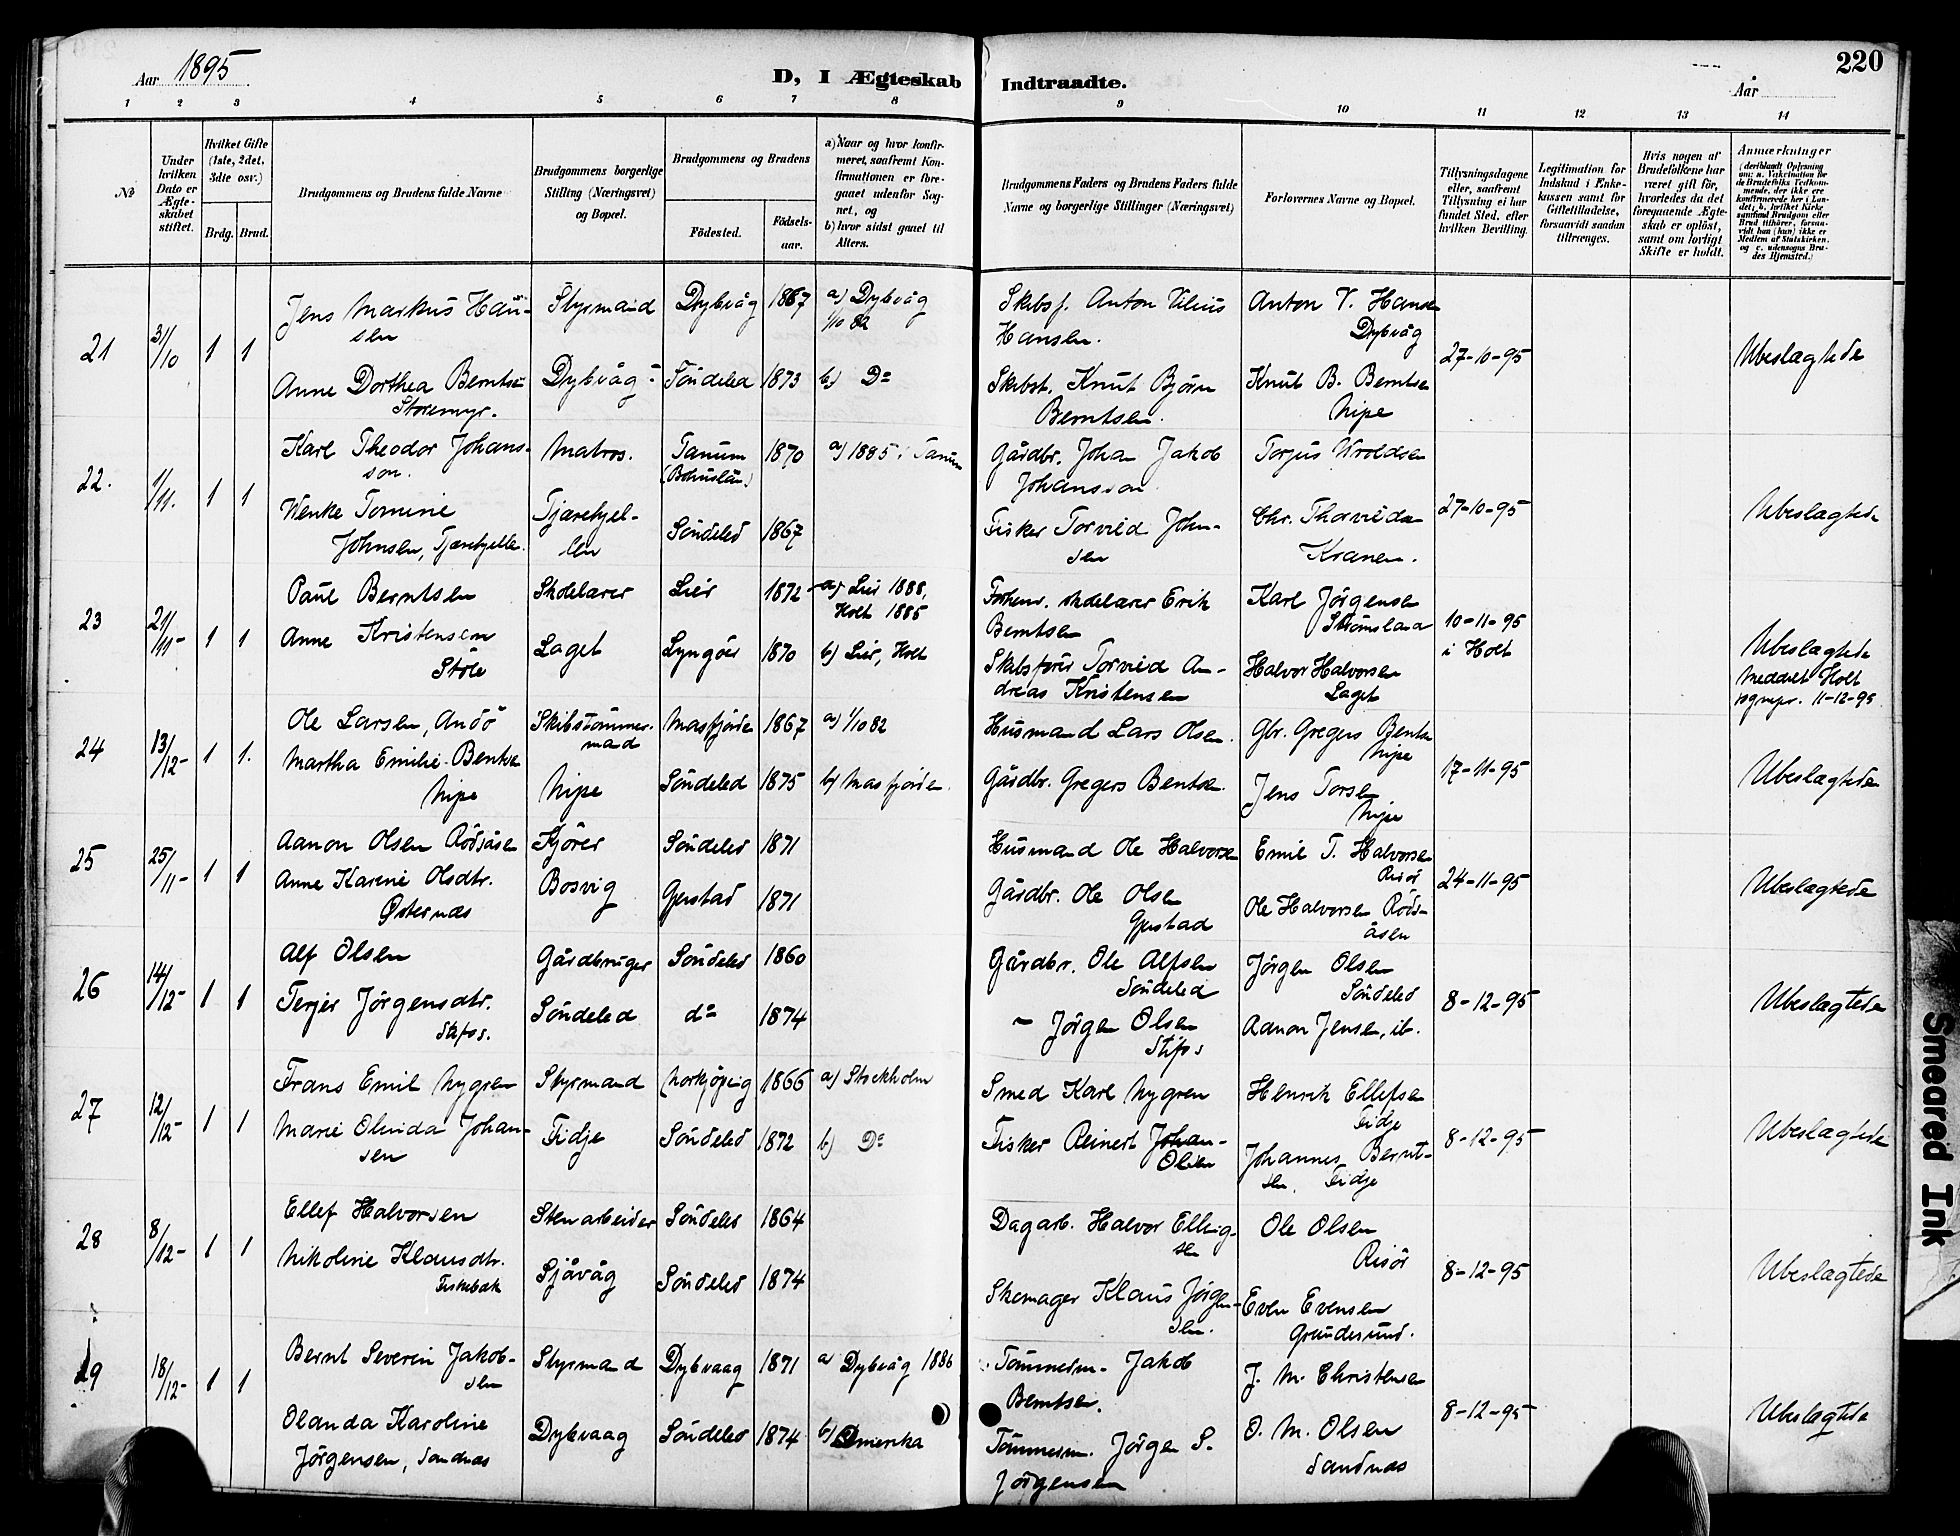 220
Aar 1895
D, I Ægteskab Indtraadte.
Aar
1 2 3 4 5 6 7 8 9 10 11 12 13 14
No
Under hvilken Dato er Ægteskabet stiftet.
Hvilket Gifte (1ste, 2det, 3die osv.)
Brdg. Brud.
Brudgommens og Brudens fulde Navne
Brudgommens borgerlige Stilling (Næringsvei) og Bopæl.
Brudgommens og Brudens
Fødested.
Fødselsaar.
a) Naar og hvor konfirmeret, saafremt Konfirmationen er foregaaet udenfor Sognet, og
b) hvor sidst gaaet til Alters.
Brudgommens Faders og Brudens Faders fulde Navne og borgerlige Stillinger (Næringsvei)
Forlovernes Navne og Bopæl.
Tillysningsdagene eller, saafremt Tillysning ei har fundet Sted, efter hvilken Bevilling.
Legitimation for Indskud i Enkekassen samt for Giftetilladelse, forsaavidt saadan tiltrænges.
Hvis nogen af Brudefolkene har været gift før, hvorledes da det foregaaende Ægteskab er opløst, samt om lovligt Skifte er holdt.
Anmærkninger
21 31/10 1 1
Jens Markus Hansen
Styrmand Dybvåg 1867 a) Dybvåg 1/10 82
Skibsf. Anton Vilius Hansen.
Anton V. Hansen Dybvåg
27-10-95 Ubeslægtede
Anne Dorthea Berntsen Storemyr.
Dybvåg Söndeled 1873 b) Do
Skibst. Knut Björn Berntsen.
Knut B. Berntsen Nipe
22. 1/11. 1 1
Karl Theodor Johansson.
Matros. Tanum (Bohuslän) 1870 a) 1885 i Tanum
Gårdbr. Johan Jakob Johansson
Torjus Wroldsen
27-10-95 Ubeslægtede
Wenke Tomine Johnsen, Tjærekjelle.
Tjærekjellen Söndeled 1867
Fisker Torvild Johnsen
Chr. Thorvildsen Kranen.
23 21/11- 1 1
Paul Berntsen
Skolelærer Lier 1872 a) Lier 1888, Holt 1885
Forhenv. skolelærer Erik Berntsen
Karl Jörgensen
10-11-95 i Holt
Anne Kristensen Stöle
Laget Lyngöer 1870 b) Lier, Holt
Skibsförer Torvild Andreas Kristensen
Halvor Halvorsen Laget
Ubeslægtede
Meddelt Holt sognepr. 11-12-95
24 13/12- 1 1.
Ole Larsen, Andö
Skibstömmermand Masfjorden 1867 a) 1/10 82
Husmand Lars Olsen.
Gbr. Gregers Bentsen Nipe
17-11-95 Ubeslægtede
Martha Emilie Bentsen Nipe
Nipe Söndeled 1875 b) Masfjorden.
Gårdbr. Gregers Bentsen.
Jens Torsen Nipe
25 25/11- 1 1
Aanon Olsen Rödsåsen
Söndeled 1871
Husmand Ole Halvorsen
Emil T. Halvorsen Risör
24-11-95 Ubeslægtede
Anne Karine Olsdtr. Østernæs
Bosvig Gjerstad 1871
Gårdbr. Ole Olsen Gjerstad
Ole Halvorsen Rödsåsen
26 14/12- 1 1
Alf Olsen
Gårdbruger Söndeled 1860
Gårdbr. Ole Alfsen Söndeled
Jörgen Olsen Söndeled
8-12-95 Ubeslægtede
Terjer Jörgensdtr.
Söndeled do 1874
- Jörgen Olsen
Aanon Jensen, ib.
27 12/12- 1 1
Frans Emil Nygren
Styrmand Norkjöping 1866 a) Stockholm
Smed Karl Nygren
Henrik Ellefsen Fidje
8-12-95 Ubeslægtede
Marie Olinida Johansen
Fidje Söndeled 1872 b) Do
Fisker Reinert Johan-Olsen
Johannes Berntsen, Fidje
28 8/12- 1 1
Ellef Halvorsen
Stenarbeider Söndeled 1864
Dagarb. Halvor Ellingsen
Ole Olsen Risör
8-12-95 Ubeslægtede
Nikoline Klausdtr. Fiskebæk
Sjåvåg Söndeled 1874
Skomager Klaus Jörgensen.
Even Evensen Grundesund.
29 18/12- 1 1
Bernt Severin Jakobsen
Styrmand Dybvaag 1871 a Dybvåg 1886
Tömmerm. Jakob Berntsen.
J. M. Christensen
8-12-95 Ubeslægtede
Olanda Karoline Jörgensen, Sandnæs
Dybvaag Söndeled 1874 b) Amerika
Tömmerm. Jörgen S. Jörgensen
O. M. Olsen Sandnæs
Smeared Ink